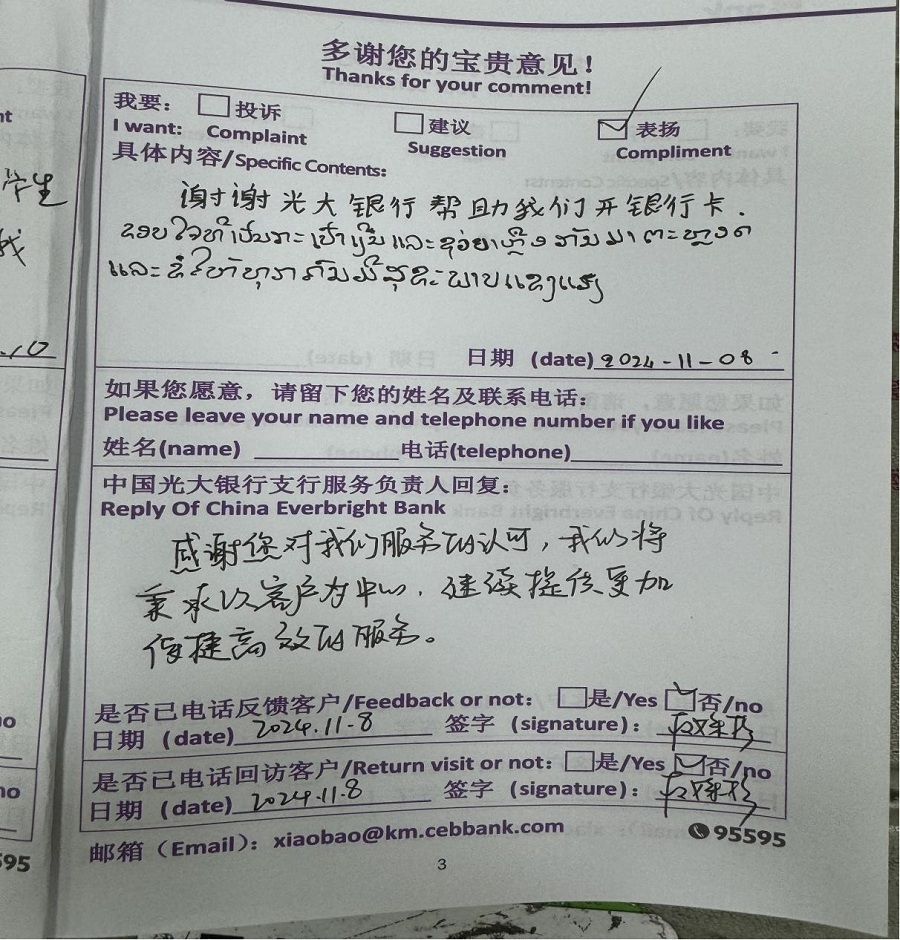 多谢您的宝贵意见！
Thanks for your comment!
我要： 投诉 建议 表扬
I want: Complaint Suggestion Compliment
具体内容/Specific Contents:
谢谢光大银行帮助我们开银行卡.
ຂອບໃຈທີ່ ແລະຊ່ວຍເຫຼືອ ມາຕະຫຼອດ
ແລະ ຂໍໃຫ້ທຸກ ມີສຸຂະພາບແຂງແຮງ
日期 (date) 2024-11-08
如果您愿意，请留下您的姓名及联系电话：
Please leave your name and telephone number if you like
姓名(name) 电话(telephone)
中国光大银行支行服务负责人回复：
Reply Of China Everbright Bank
感谢您对我们服务的认可，我们将
秉承以客户为中心，继续提供更加
便捷高效的服务。
是否已电话反馈客户/Feedback or not: 是/Yes 否/no
日期 (date) 2024.11.8 签字 (signature)：
是否已电话回访客户/Return visit or not: 是/Yes 否/no
日期 (date) 2024.11.8 签字 (signature)：
邮箱（Email）: xiaobao@km.cebbank.com 95595
3
nt
学生
我
.10
no
no
595